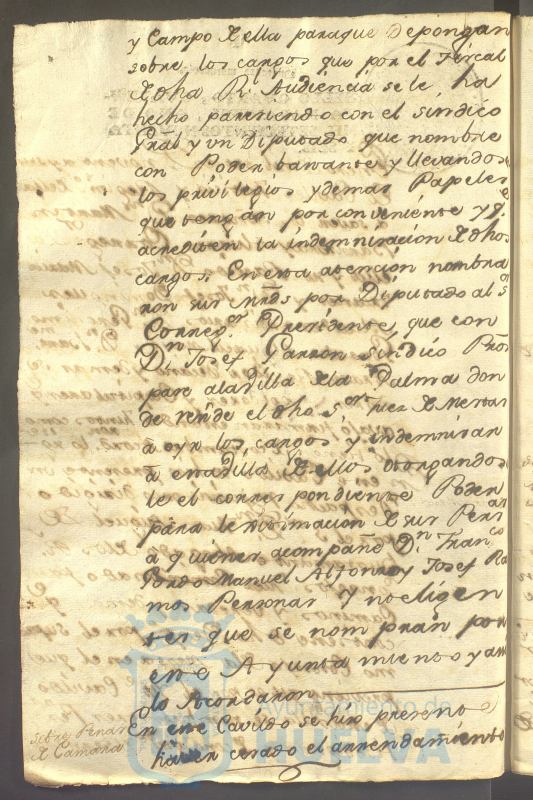 y Campo de ella para que Depongan
sobre los cargos que por el Fiscal
de dha Rl. Audiencia se le ha
hecho, pareciendo con el Sindico
Gral y un Diputado que nombre
con Poder bastante y llevando
los privilegios y demas Papeles
que tengan por conveniente y q.e
acrediten la indemnizacion de dhos
cargos. En esta atencion nombra
ron sus Mrds por Diputado al Sor
Correg.or Presidente, que con
Dn Josef Garzon Sindico
pase a la Villa de la Palma don
de reside el dho Sor Juez de
a oyr los cargos y indemnizar
a esta Villa de ellos otorgandos
le el correspondiente Poder
para lexitimacion de sus Pers.as
a quienes acompañe Dn Fran.co
Manuel Alfonso y Josef Ra
mos Personas Ynoeligen
tes que se nombran por
este Ayuntamiento y assi
lo Acordaron
En este Cavildo se hizo presente
haver cesado el arrendamiento
Sobre Penas
de Camara
Ayuntamiento de
HUELVA